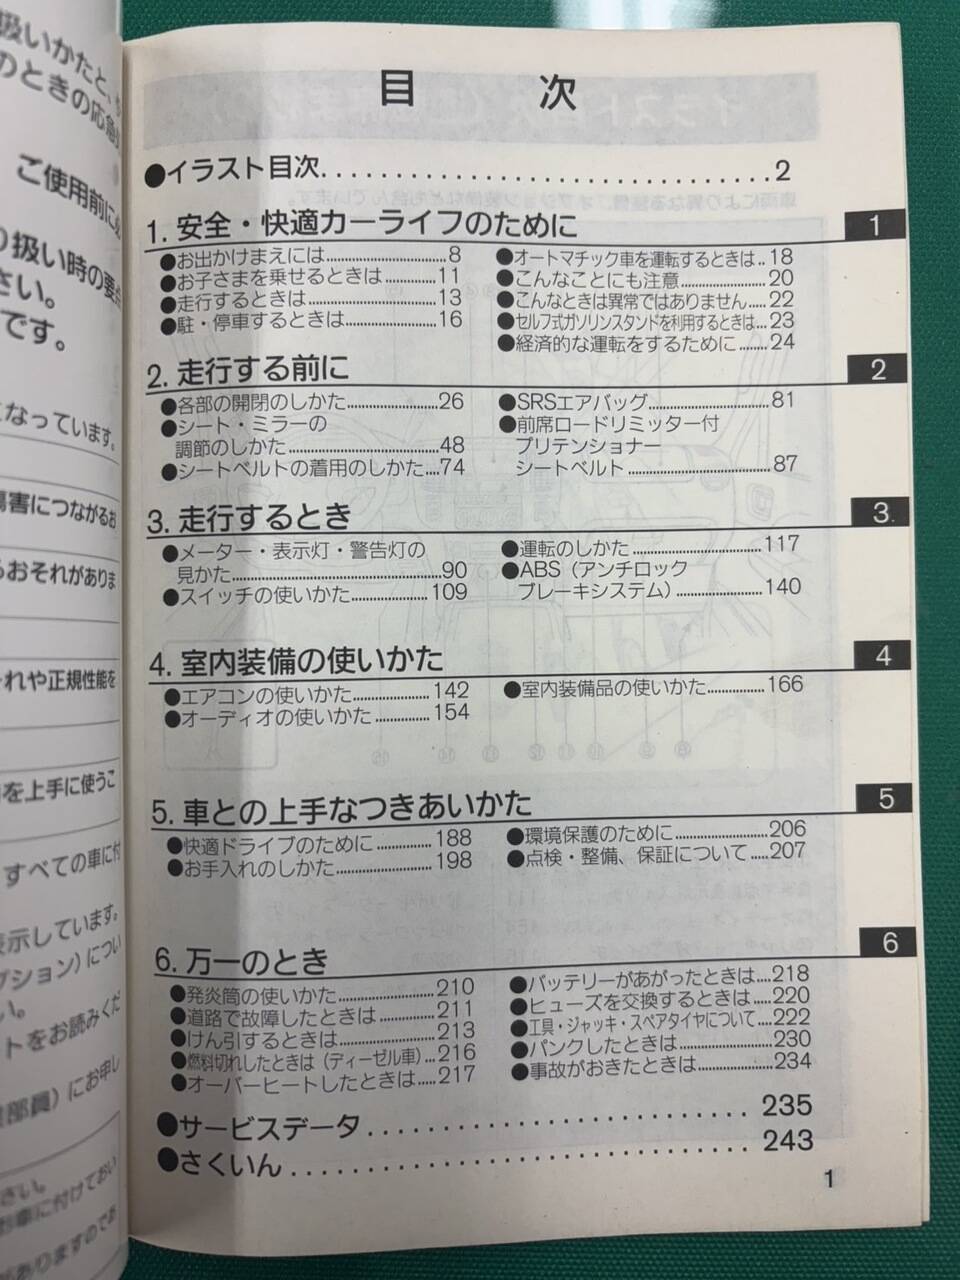 扱いかたと、
のときの応急
ご使用前に必
り扱い時の要点
さい。
です。
となっています。
傷害につながるお
るおそれがありま
それや正規性能を
を上手に使うこ
すべての車に付
表示しています。
プション）につい
い。
トをお読みくだ
業部員）にお申し
さい。
お車に付けておい
がありますのでお
目 次
●イラスト目次 2
1. 安全・快適カーライフのために 1
●お出かけまえには 8
●お子さまを乗せるときは 11
●走行するときは 13
●駐・停車するときは 16
●オートマチック車を運転するときは 18
●こんなことにも注意 20
●こんなときは異常ではありません 22
●セルフ式ガソリンスタンドを利用するときは 23
●経済的な運転をするために 24
2. 走行する前に 2
●各部の開閉のしかた 26
●シート・ミラーの
調節のしかた 48
●シートベルトの着用のしかた 74
●SRSエアバッグ 81
●前席ロードリミッター付
プリテンショナー
シートベルト 87
3. 走行するとき 3
●メーター・表示灯・警告灯の
見かた 90
●スイッチの使いかた 109
●運転のしかた 117
●ABS（アンチロック
ブレーキシステム） 140
4. 室内装備の使いかた 4
●エアコンの使いかた 142
●オーディオの使いかた 154
●室内装備品の使いかた 166
5. 車との上手なつきあいかた 5
●快適ドライブのために 188
●お手入れのしかた 198
●環境保護のために 206
●点検・整備、保証について 207
6. 万一のとき 6
●発炎筒の使いかた 210
●道路で故障したときは 211
●けん引するときは 213
●燃料切れしたときは（ディーゼル車） 216
●オーバーヒートしたときは 217
●バッテリーがあがったときは 218
●ヒューズを交換するときは 220
●工具・ジャッキ・スペアタイヤについて 222
●パンクしたときは 230
●事故がおきたときは 234
●サービスデータ 235
●さくいん 243
1